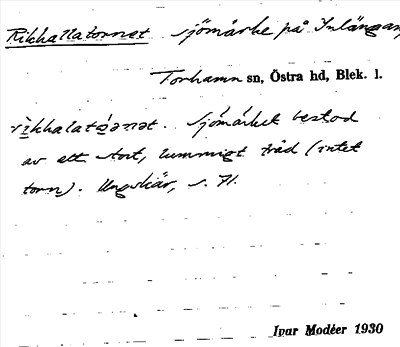 Rikhallatornet sjömärke på Inlängan
Torhamn sn, Östra hd, Blek. l.
Sjömärket bestod
av ett stort, lummigt träd (intet
torn). Ungskär, s. 71.
Ivar Modéer 1930